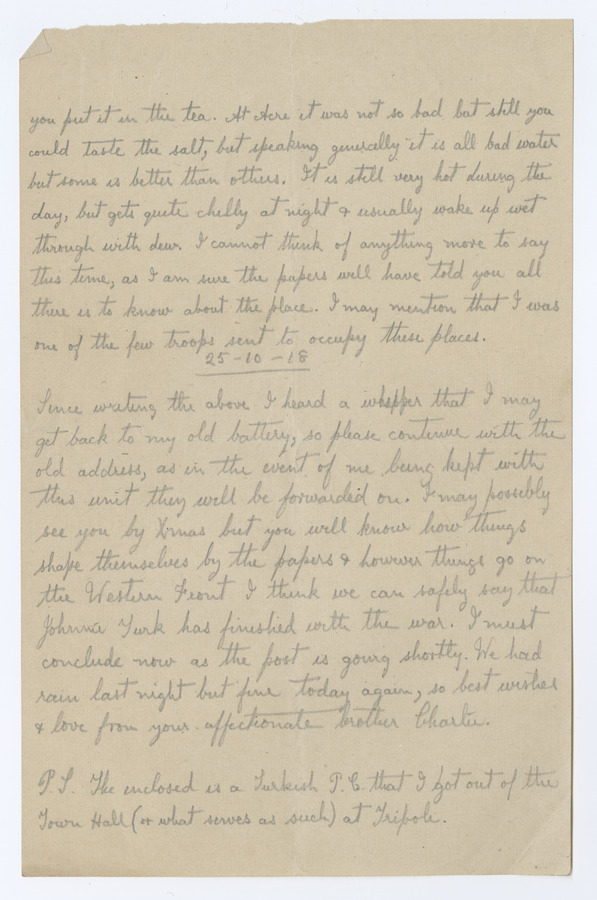 you put it in the tea. At Acre it was not so bad but still you
could taste the salt, but speaking generally it is all bad water
but some is better than others. It is still very hot during the
day, but gets quite chilly at night & usually wake up wet
through with dew. I cannot think of anything more to say
this time, as I am sure the papers will have told you all
there is to know about the place. I may mention that I was
one of the few troops sent to occupy these places.
25-10-18
Since writing the above I heard a whisper that I may
get back to my old battery, so please continue with the
old address, as in the event of me being kept with
this unit they will be forwarded on. I may possibly
see you by Xmas but you will know how things
shape themselves by the papers & however things go on
the Western Front I think we can safely say that
Johnnie Turk has finished with the war. I must
conclude now as the post is going shortly. We had
rain last night but fine today again, so best wishes
& love from your affectionate brother Charlie.
P.S. The enclosed is a Turkish P.C. that I got out of the
Town Hall (or what serves as such) at Tripoli.